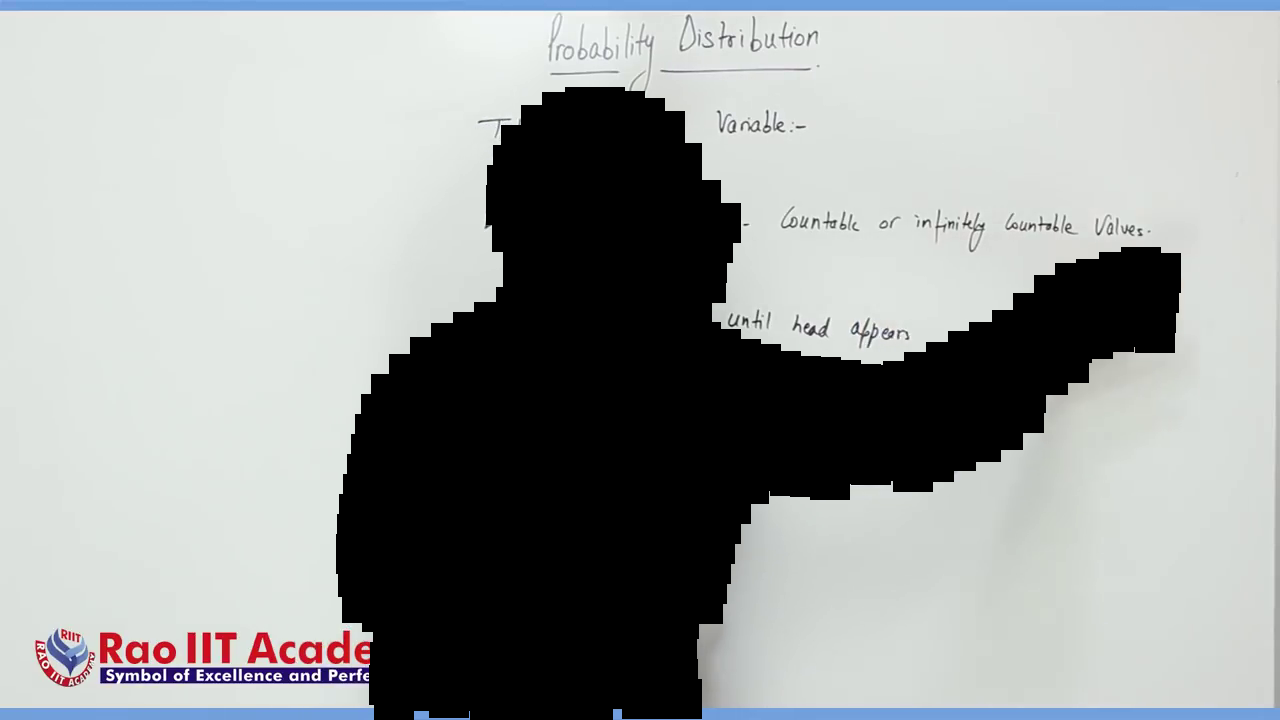 Probability Distribution
Variable:-
- Countable or infinitely Countable Values.
until head appears
RIIT
RAO IIT ACADEMY
Rao IIT Acade
Symbol of Excellence and Perfe